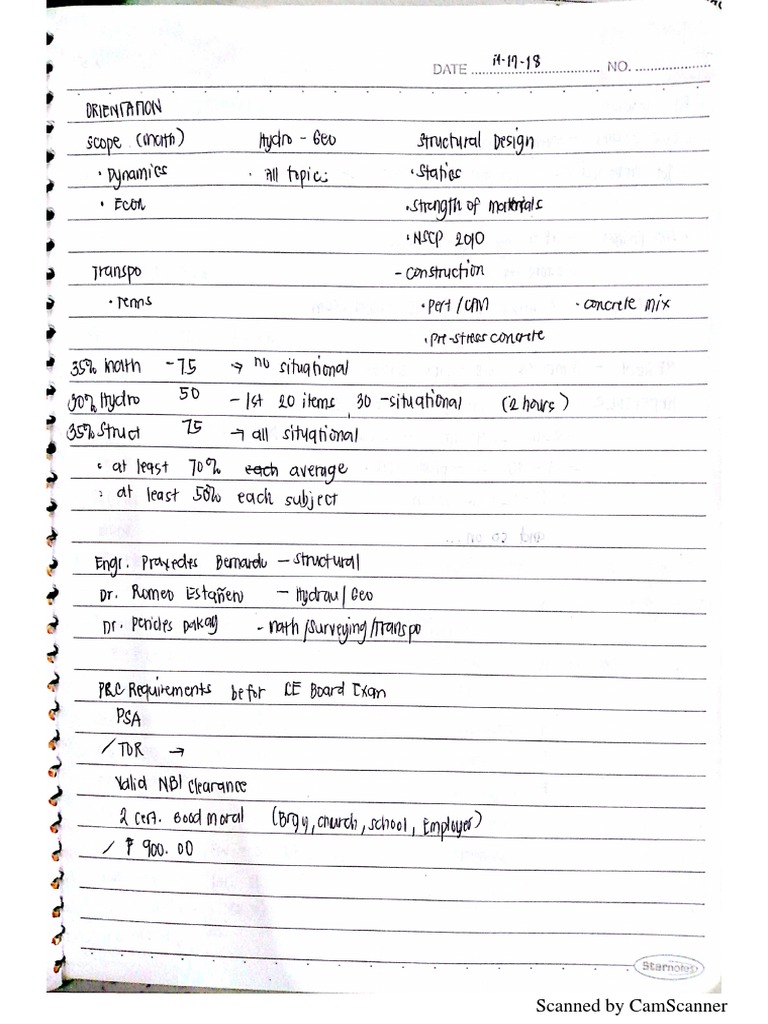 DATE 11-17-18 NO.
ORIENTATION
Scope (math) Hydro - Geo Structural Design
• Dynamics • All topics • Statics
• Econ • Strength of materials
• NSCP 2010
Transpo - Construction
• Terms • Pert/CPM • Concrete mix
• Pre-stress concrete
35% Math - 75 → no situational
30% Hydro 50 - 1st 20 items, 30 -situational (2 hours)
35% Struct 75 → all situational
• at least 70% each average
• at least 50% each subject
Engr. Praxedes Bernardo - Structural
Dr. Romeo Estañero - Hydrau/Geo
Dr. Pericles Dakay - math/Surveying/Transpo
PRC Requirements befor CE Board Exam
PSA
/ TOR →
Valid NBI Clearance
2 Cert. Good moral (Brgy, church, school, Employer)
/ ₱ 900.00
Starnotes
Scanned by CamScanner